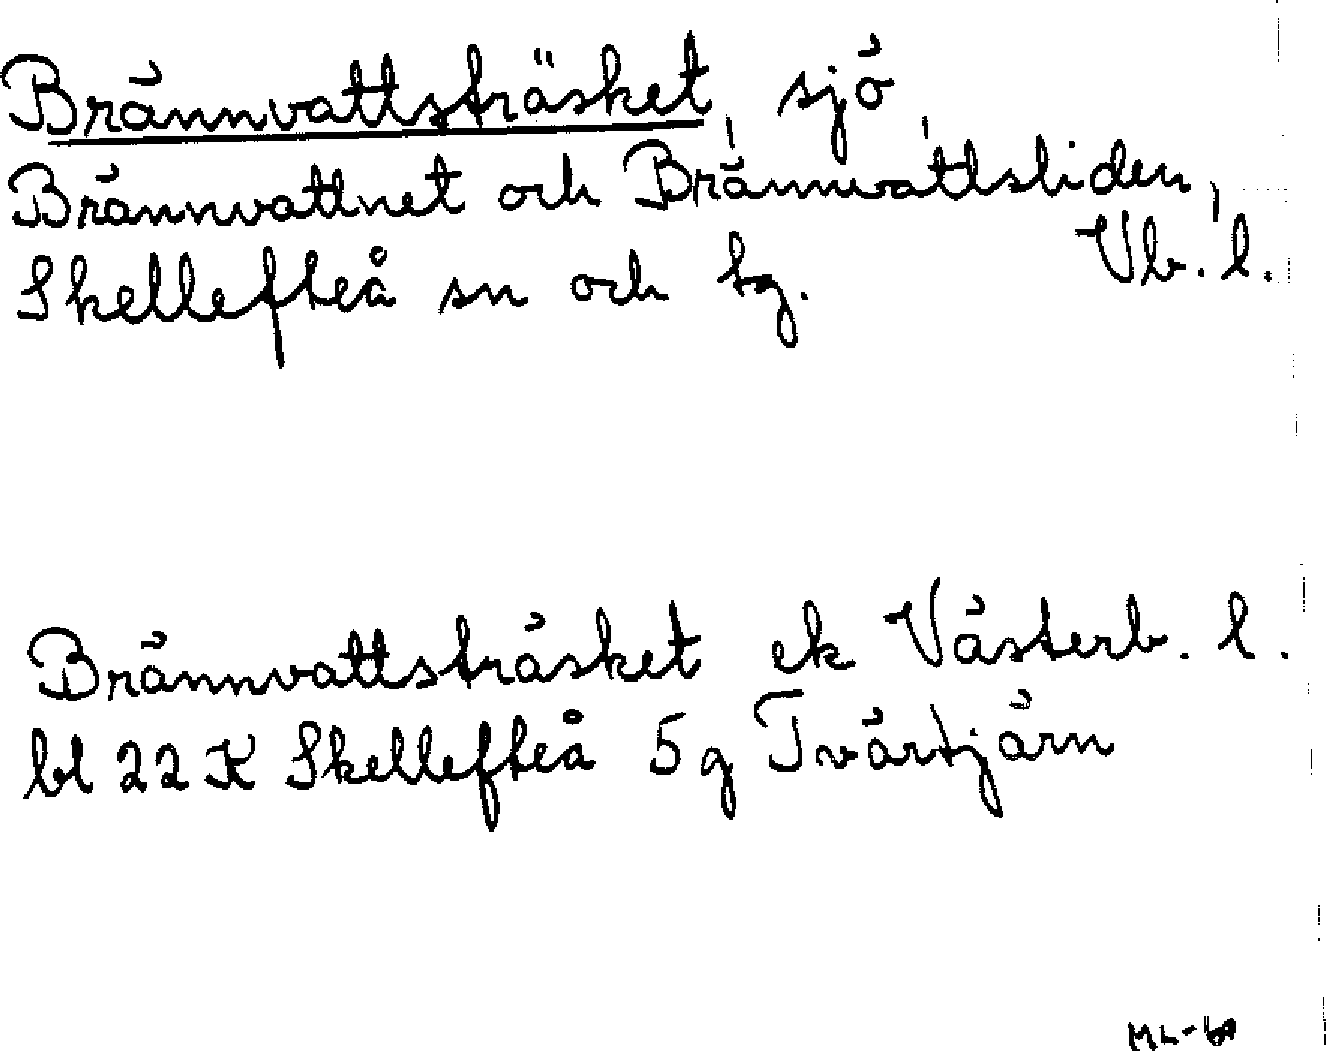 Brännvattsträsket, sjö
Brännvattnet och Brännvattsliden,
Skellefteå sn och tg. Vb. l.
Brännvattsträsket ek Västerb. l.
bl 22 K Skellefteå 5g Tvärtjärn